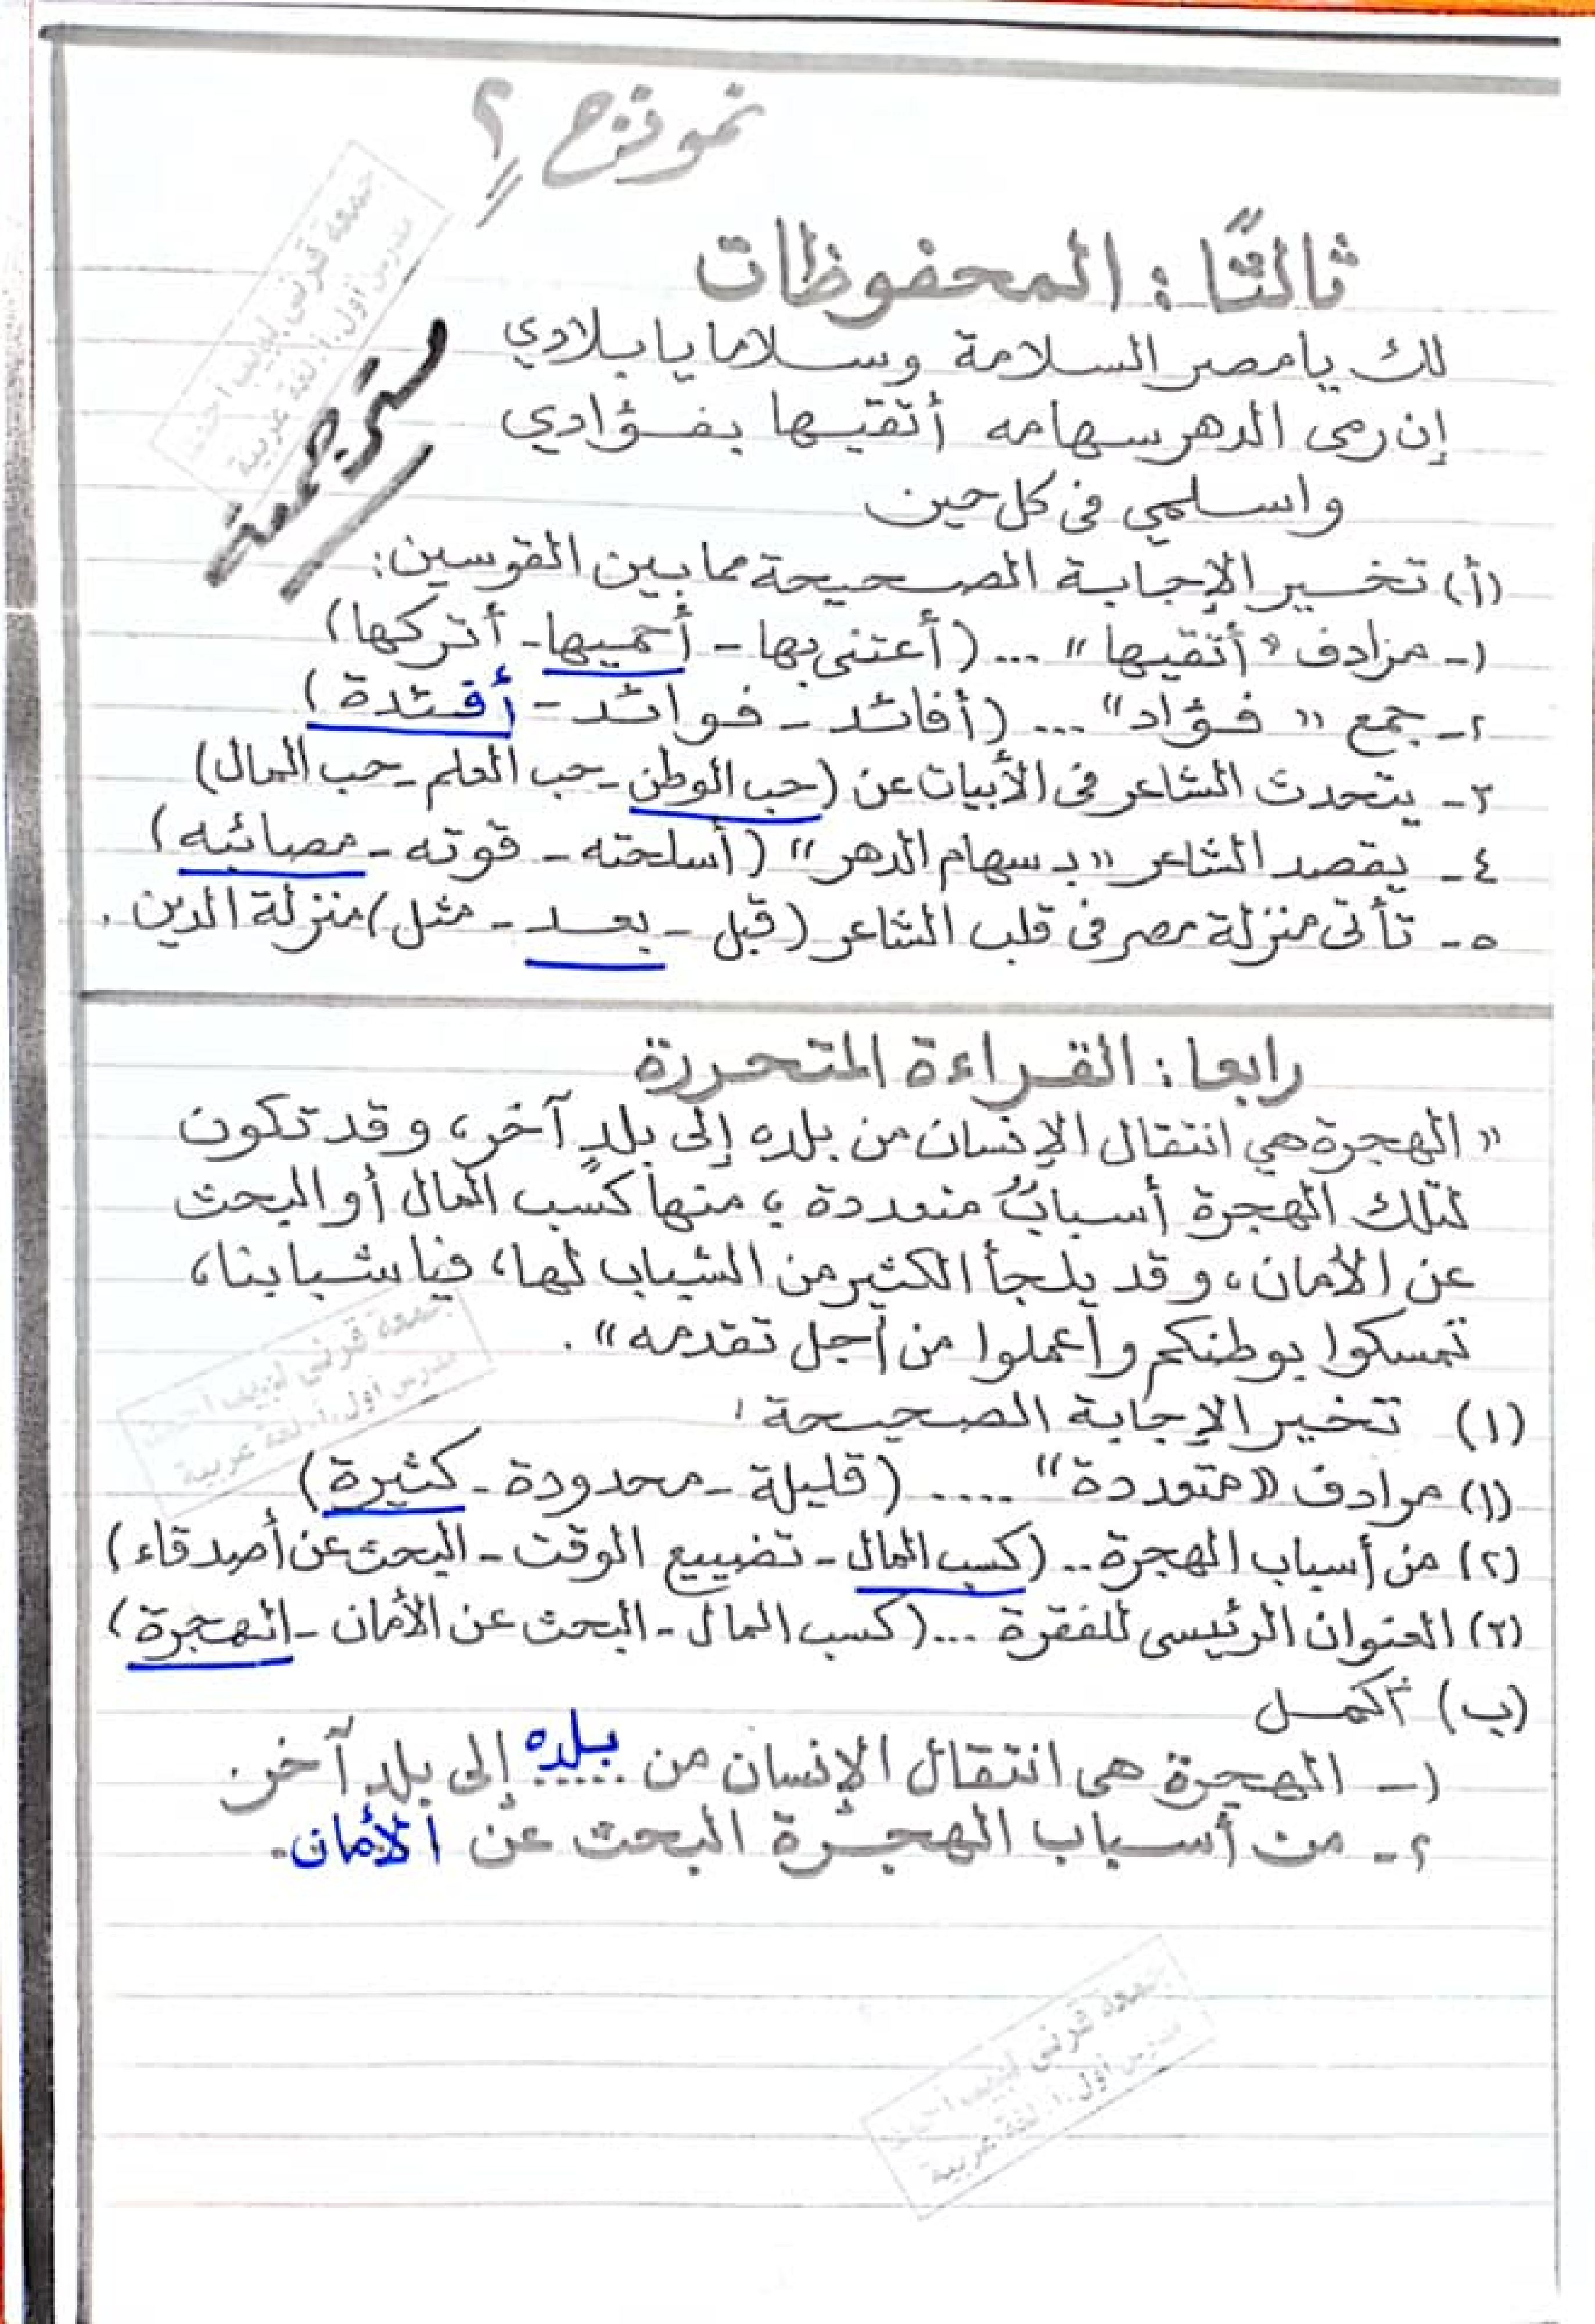 نموذج ٢
ثالثًا : المحفوظات
لك يا مصر السلامة وسلاما يا بلادي
إن رمى الدهر سهامه أتقيها بفؤادي
واسلمي في كل حين
مستر جمعة
جمعة قرني لبيب أحمد
مدرس أول أ. لغة عربية
(أ) تخير الإجابة الصحيحة مما بين القوسين :
١- مرادف "أتقيها" ... (أعتني بها - أحميها - أتركها)
٢- جمع "فؤاد" ... (أفائد - فوائد - أفئدة)
٣- يتحدث الشاعر فى الأبيات عن (حب الوطن - حب العلم - حب المال)
٤- يقصد الشاعر "بـ سهام الدهر" (أسلحته - قوته - مصائبه)
٥- تأتى منزلة مصر فى قلب الشاعر (قبل - بعد - مثل) منزلة الدين .
رابعا : القراءة المتحررة
"الهجرة هي انتقال الإنسان من بلده إلى بلدٍ آخر، وقد تكون
لتلك الهجرة أسبابٌ متعددة ؛ منها كسب المال أو البحث
عن الأمان، وقد يلجأ الكثير من الشباب لها، فيا شبابنا،
تمسكوا بوطنكم واعملوا من أجل تقدمه" .
جمعة قرني لبيب أحمد
مدرس أول أ. لغة عربية
(١) تخير الإجابة الصحيحة :
(١) مرادف "متعددة" .... (قليلة - محدودة - كثيرة)
(٢) من أسباب الهجرة .. (كسب المال - تضييع الوقت - البحث عن أصدقاء)
(٣) العنوان الرئيسى للفقرة ... (كسب المال - البحث عن الأمان - الهجرة)
(ب) أكمل
١- الهجرة هى انتقال الإنسان من بلده إلى بلد آخر
٢- من أسباب الهجرة البحث عن الأمان.
جمعة قرني لبيب أحمد
مدرس أول أ. لغة عربية